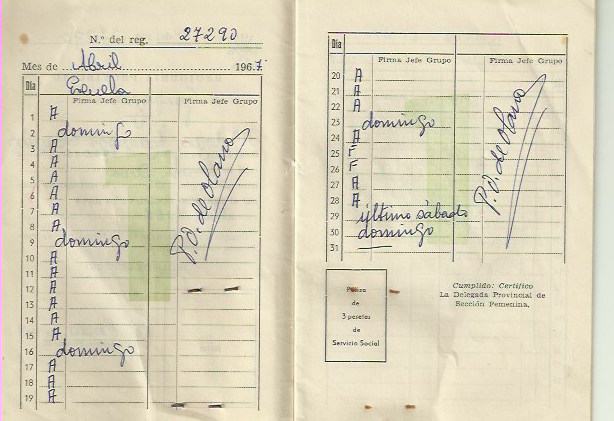 N.º del reg. 27290
Mes de Abril 1967
Escuela
Día Firma Jefe Grupo Firma Jefe Grupo
1 A
2 domingo
3 A
4 A
5 A
6 A
7 A
8 A
9 domingo
10 A
11 A
12 A
13 A
14 A
15 A
16 domingo
17 A
18 A
19 A
P.O. de Olano
Día Firma Jefe Grupo Firma Jefe Grupo
20 A
21 A
22 A
23 domingo
24 A
25 F
26 F
27 A
28 A
29 último sábado
30 domingo
31
P.O. de Olano
Póliza
de
3 pesetas
de
Servicio Social
Cumplido: Certifico
La Delegada Provincial de
Sección Femenina,